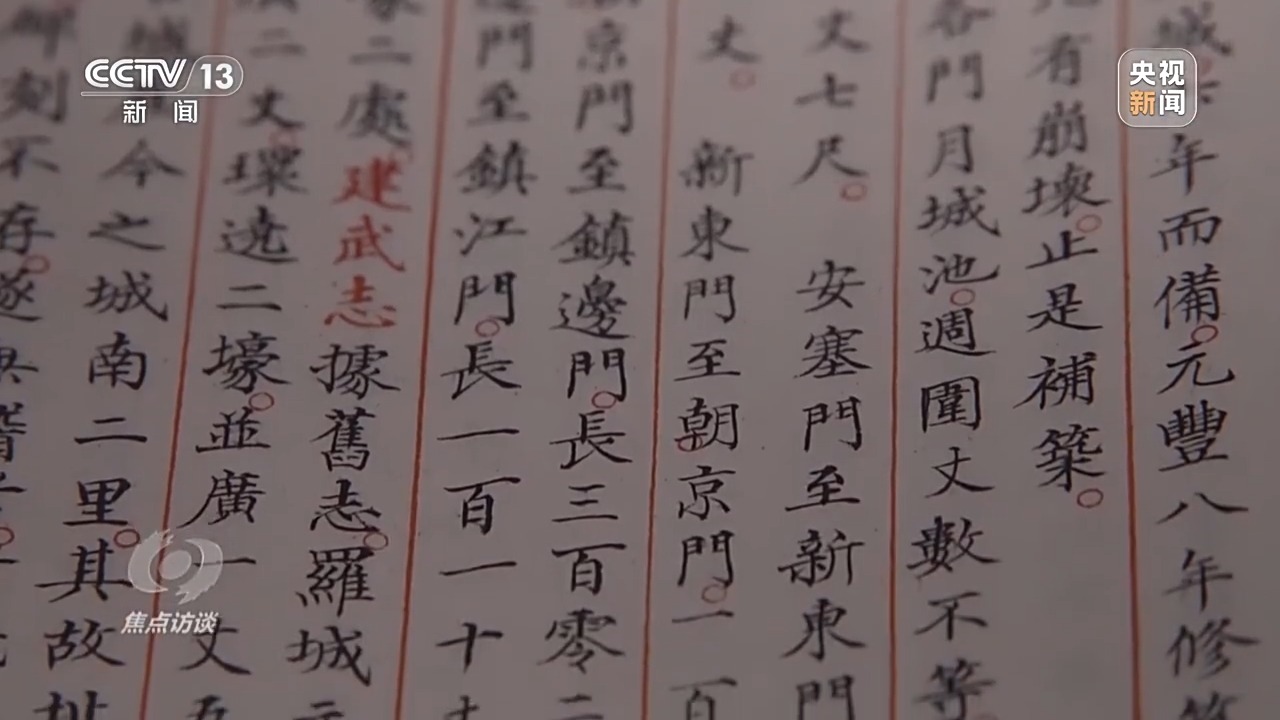 CCTV 13
新闻
央视
新闻
城 年而備元豐八年修
有崩壞止是補築
各門月城池週圍丈數不等
丈七尺 安塞門至新東門
丈 新東門至朝京門一百
京門至鎮邊門長三百零二
門至鎮江門長一百一十
二處建武志據舊志羅城
二丈環遶二壕並廣一丈五
今之城南二里其故址
刻不存遂
焦点访谈